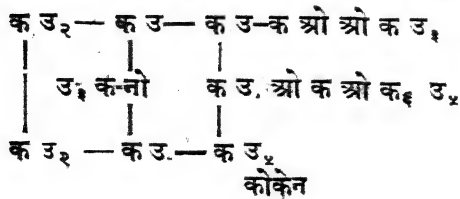 क उ₂ — क उ — क उ-क ओ ओ क उ₃
उ₃ क-नो क उ. ओ क ओ क₆ उ₅
क उ₂ — क उ. — क उ₅
कोकेन